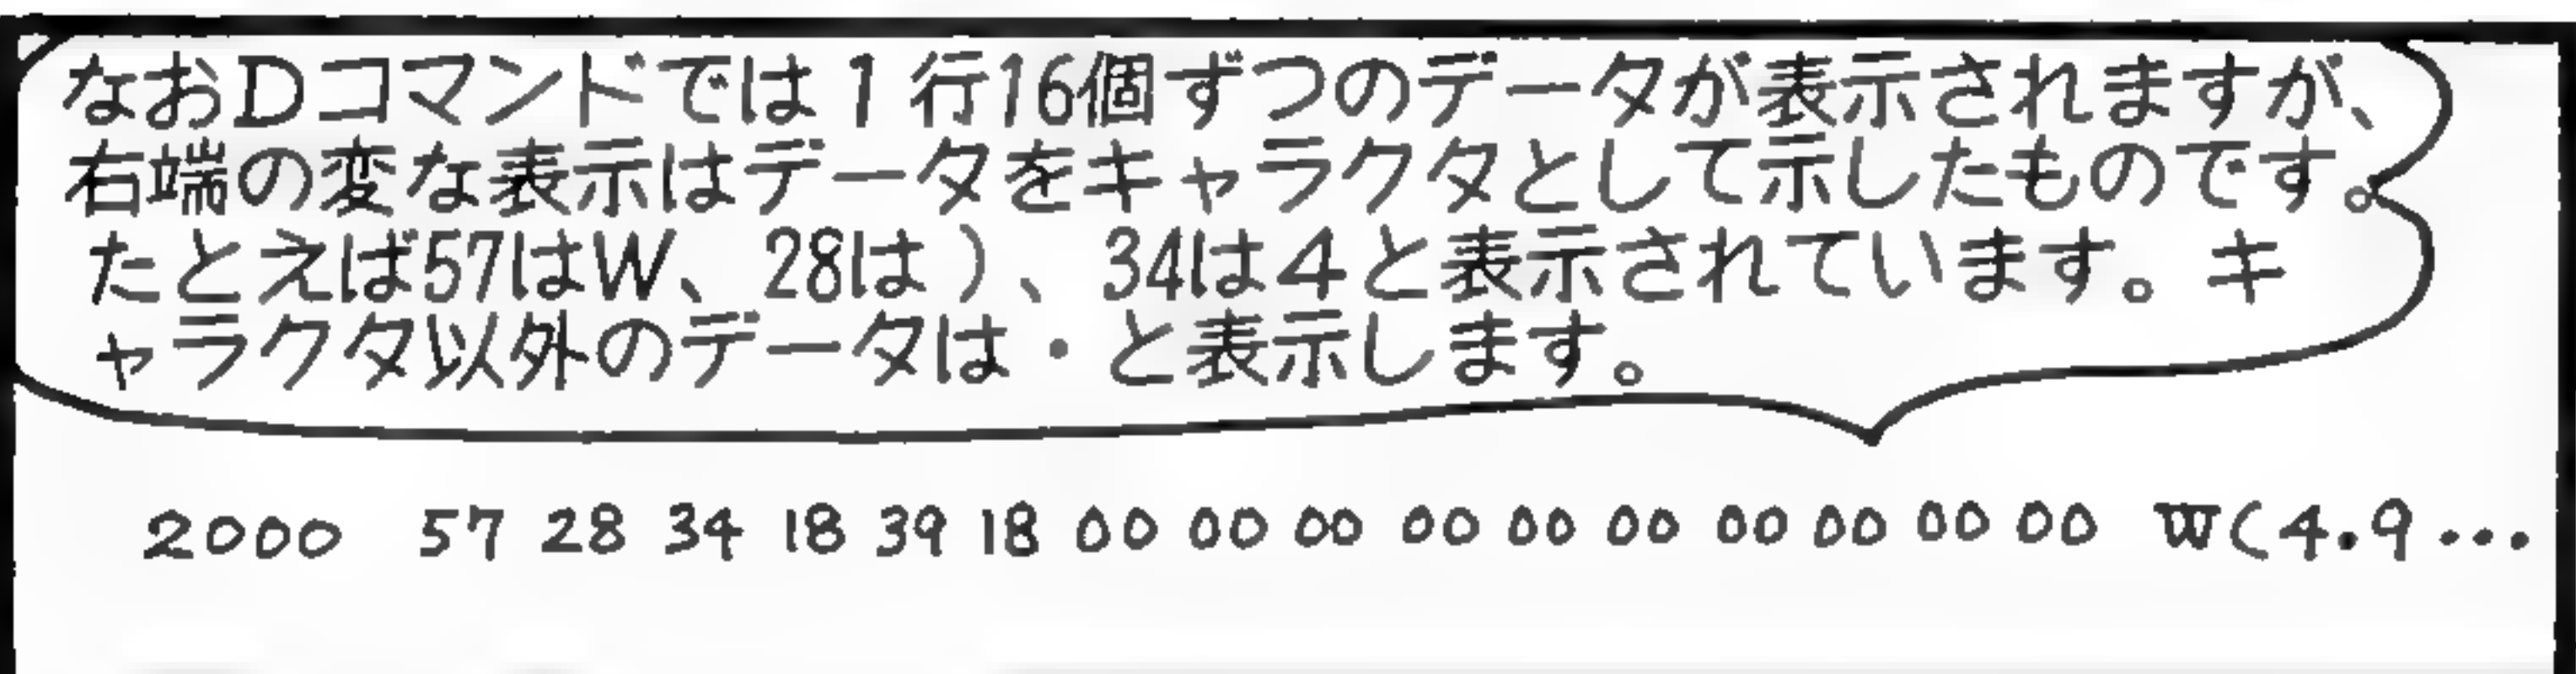 なおDコマンドでは1行16個ずつのデータが表示されますが、
右端の変な表示はデータをキャラクタとして示したものです。
たとえば57はW、28は)、34は4と表示されています。キ
ャラクタ以外のデータは・と表示します。
2000 57 28 34 18 39 18 00 00 00 00 00 00 00 00 00 00 W(4.9...